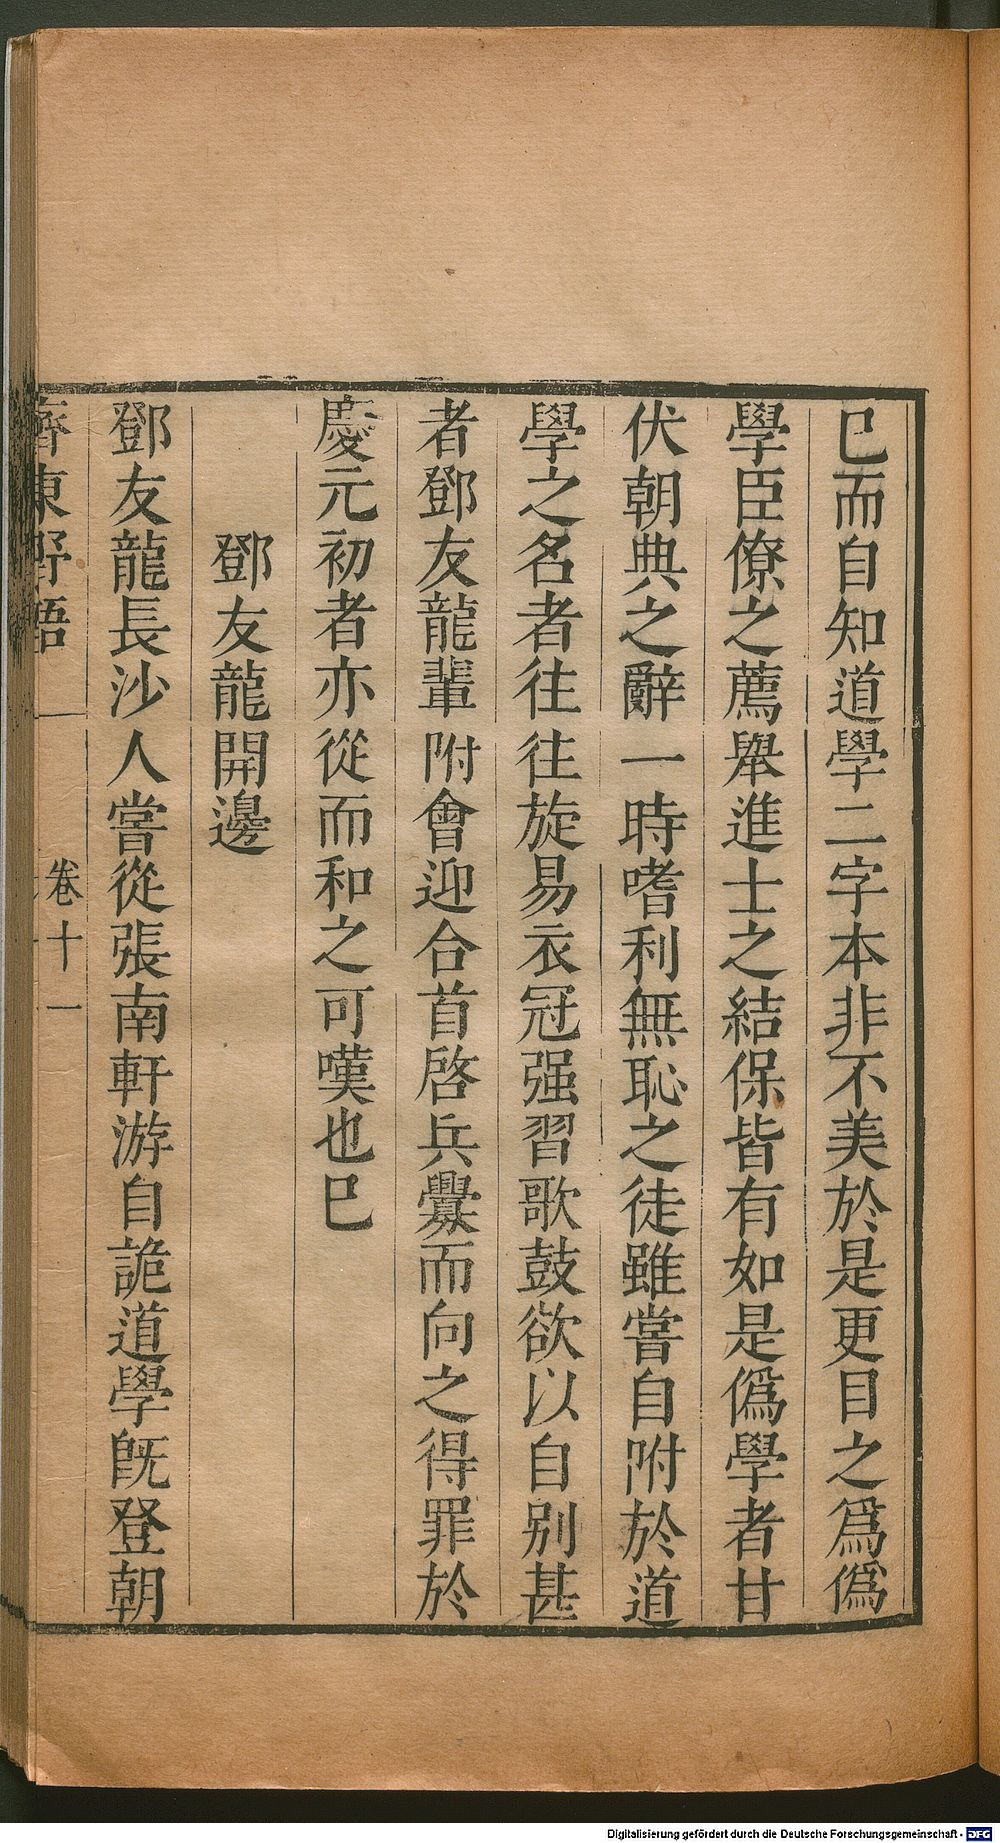 已而自知道學二字本非不美於是更目之爲僞
學臣僚之薦舉進士之結保皆有如是僞學者甘
伏朝典之辭一時嗜利無恥之徒雖嘗自附於道
學之名者往往旋易衣冠强習歌鼓欲以自别甚
者鄧友龍輩附會迎合首啓兵釁而向之得罪於
慶元初者亦從而和之可嘆也巳
鄧友龍開邊
鄧友龍長沙人嘗從張南軒游自詭道學旣登朝
齊東野語
卷十一
Digitalisierung gefördert durch die Deutsche Forschungsgemeinschaft - DFG